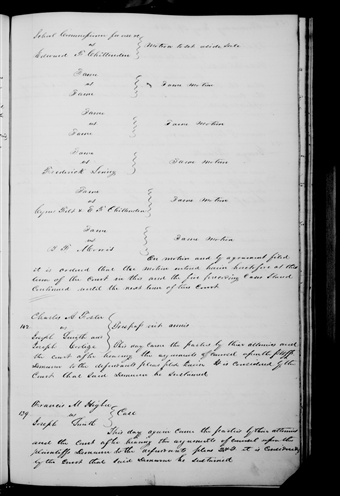 School Commissioners for use &c
vs
Edward F. Chittenden } Motion to set aside Sale
Same
vs
Same } Same Motion
Same
vs
Same } Same Motion
Same
vs
Frederick } Same Motion
Same
vs
& E. F. Chittenden } Same Motion
Same
vs } Same Motion
On motion and by agreement filed
it is ordered that the motion entered herein heretofore at this
term of the Court in this and the five preceding cases stand
Continued until the next term of this Court
Charles A. Foster
vs } Trespass vi et armis
Joseph Smith and
Joseph This day came the parties by their attornies and
the court after hearing the arguments of counsel upon the pltffs
demurrer to the defendants pleas filed herein It is considered by the
Court that said demurrer be sustained
Francis M. Higbee
129 vs } Case
Joseph Smith
This day again came the parties by their attornies
and the Court after hearing the arguments of counsel upon the
plaintiffs demurrer to the defendants pleas 2 & 3 it is considered
by the Court that said demurrer be sustained